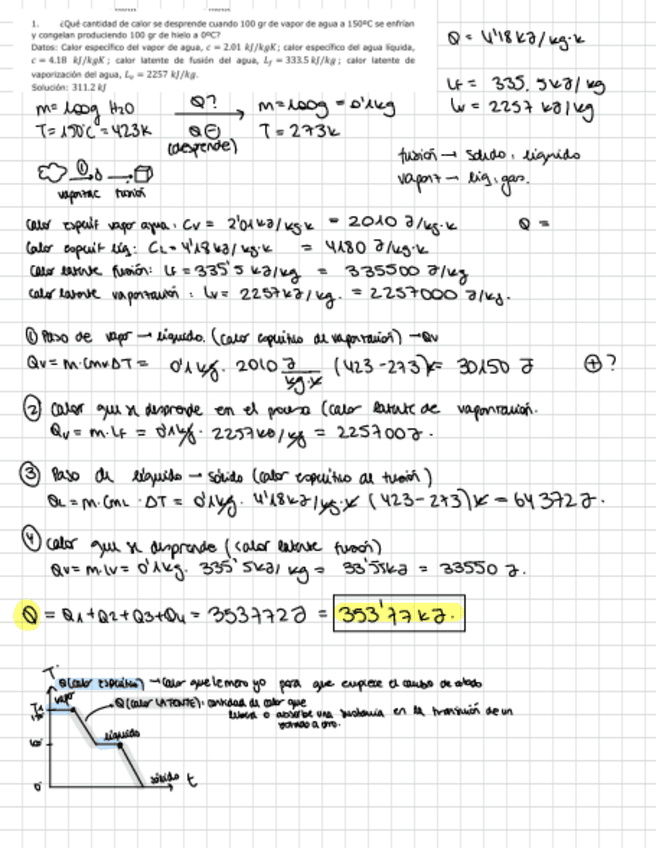 1. ¿Qué cantidad de calor se desprende cuando 100 gr de vapor de agua a 150ºC se enfrían
y congelan produciendo 100 gr de hielo a 0ºC?
Datos: Calor específico del vapor de agua, c = 2.01 kJ/kgK; calor específico del agua líquida,
c = 4.18 kJ/kgK; calor latente de fusión del agua, Lf = 333.5 kJ/kg; calor latente de
vaporización del agua, Lv = 2257 kJ/kg.
Solución: 311.2 kJ
Q = 4'18 kJ/kg·k
LF = 335.5 kJ/kg
LV = 2257 kJ/kg
m = 100g H2O Q? m = 100g = 0'1kg
T = 150ºC = 423K Q⊖ T = 273K
(desprende)
fusión → sólido, líquido
vapor → liq, gas.
①
vaporizac fusión
Calor específ vapor agua: Cv = 2'01 kJ/kg·k = 2010 J/kg·k Q =
Calor específ liq: CL = 4'18 kJ/kg·k = 4180 J/kg·k
Calor latente fusión: LF = 335'5 kJ/kg = 335500 J/kg
Calor latente vaporización: LV = 2257 kJ/kg. = 2257000 J/kg.
① Paso de vapor → líquido. (calor específico de vaporización) → Qv
Qv = m·Cmv·ΔT = 0'1 kg · 2010 J/kg·k (423 - 273)k = 30150 J ⊕?
② Calor que se desprende en el proceso (calor latente de vaporización.
Qv = m·LF = 0'1kg · 2257 kJ/kg = 225700J.
③ Paso de líquido → sólido (calor específico de fusión)
QL = m·CmL·ΔT = 0'1kg · 4'18 kJ/kg·k (423 - 273)k = 64372J.
④ Calor que se desprende (calor latente fusión)
Qv = m·LV = 0'1kg · 335'5kJ/kg = 33'55kJ = 33550 J.
Q = Q1 + Q2 + Q3 + Q4 = 353772J = 353'77 kJ.
T
Q (calor específico) → calor que le meto yo para que empiece el cambio de estado
vapor
Q (calor LATENTE): cantidad de calor que
libera o absorbe una sustancia en la transición de un
estado a otro.
líquido
0
sólido t